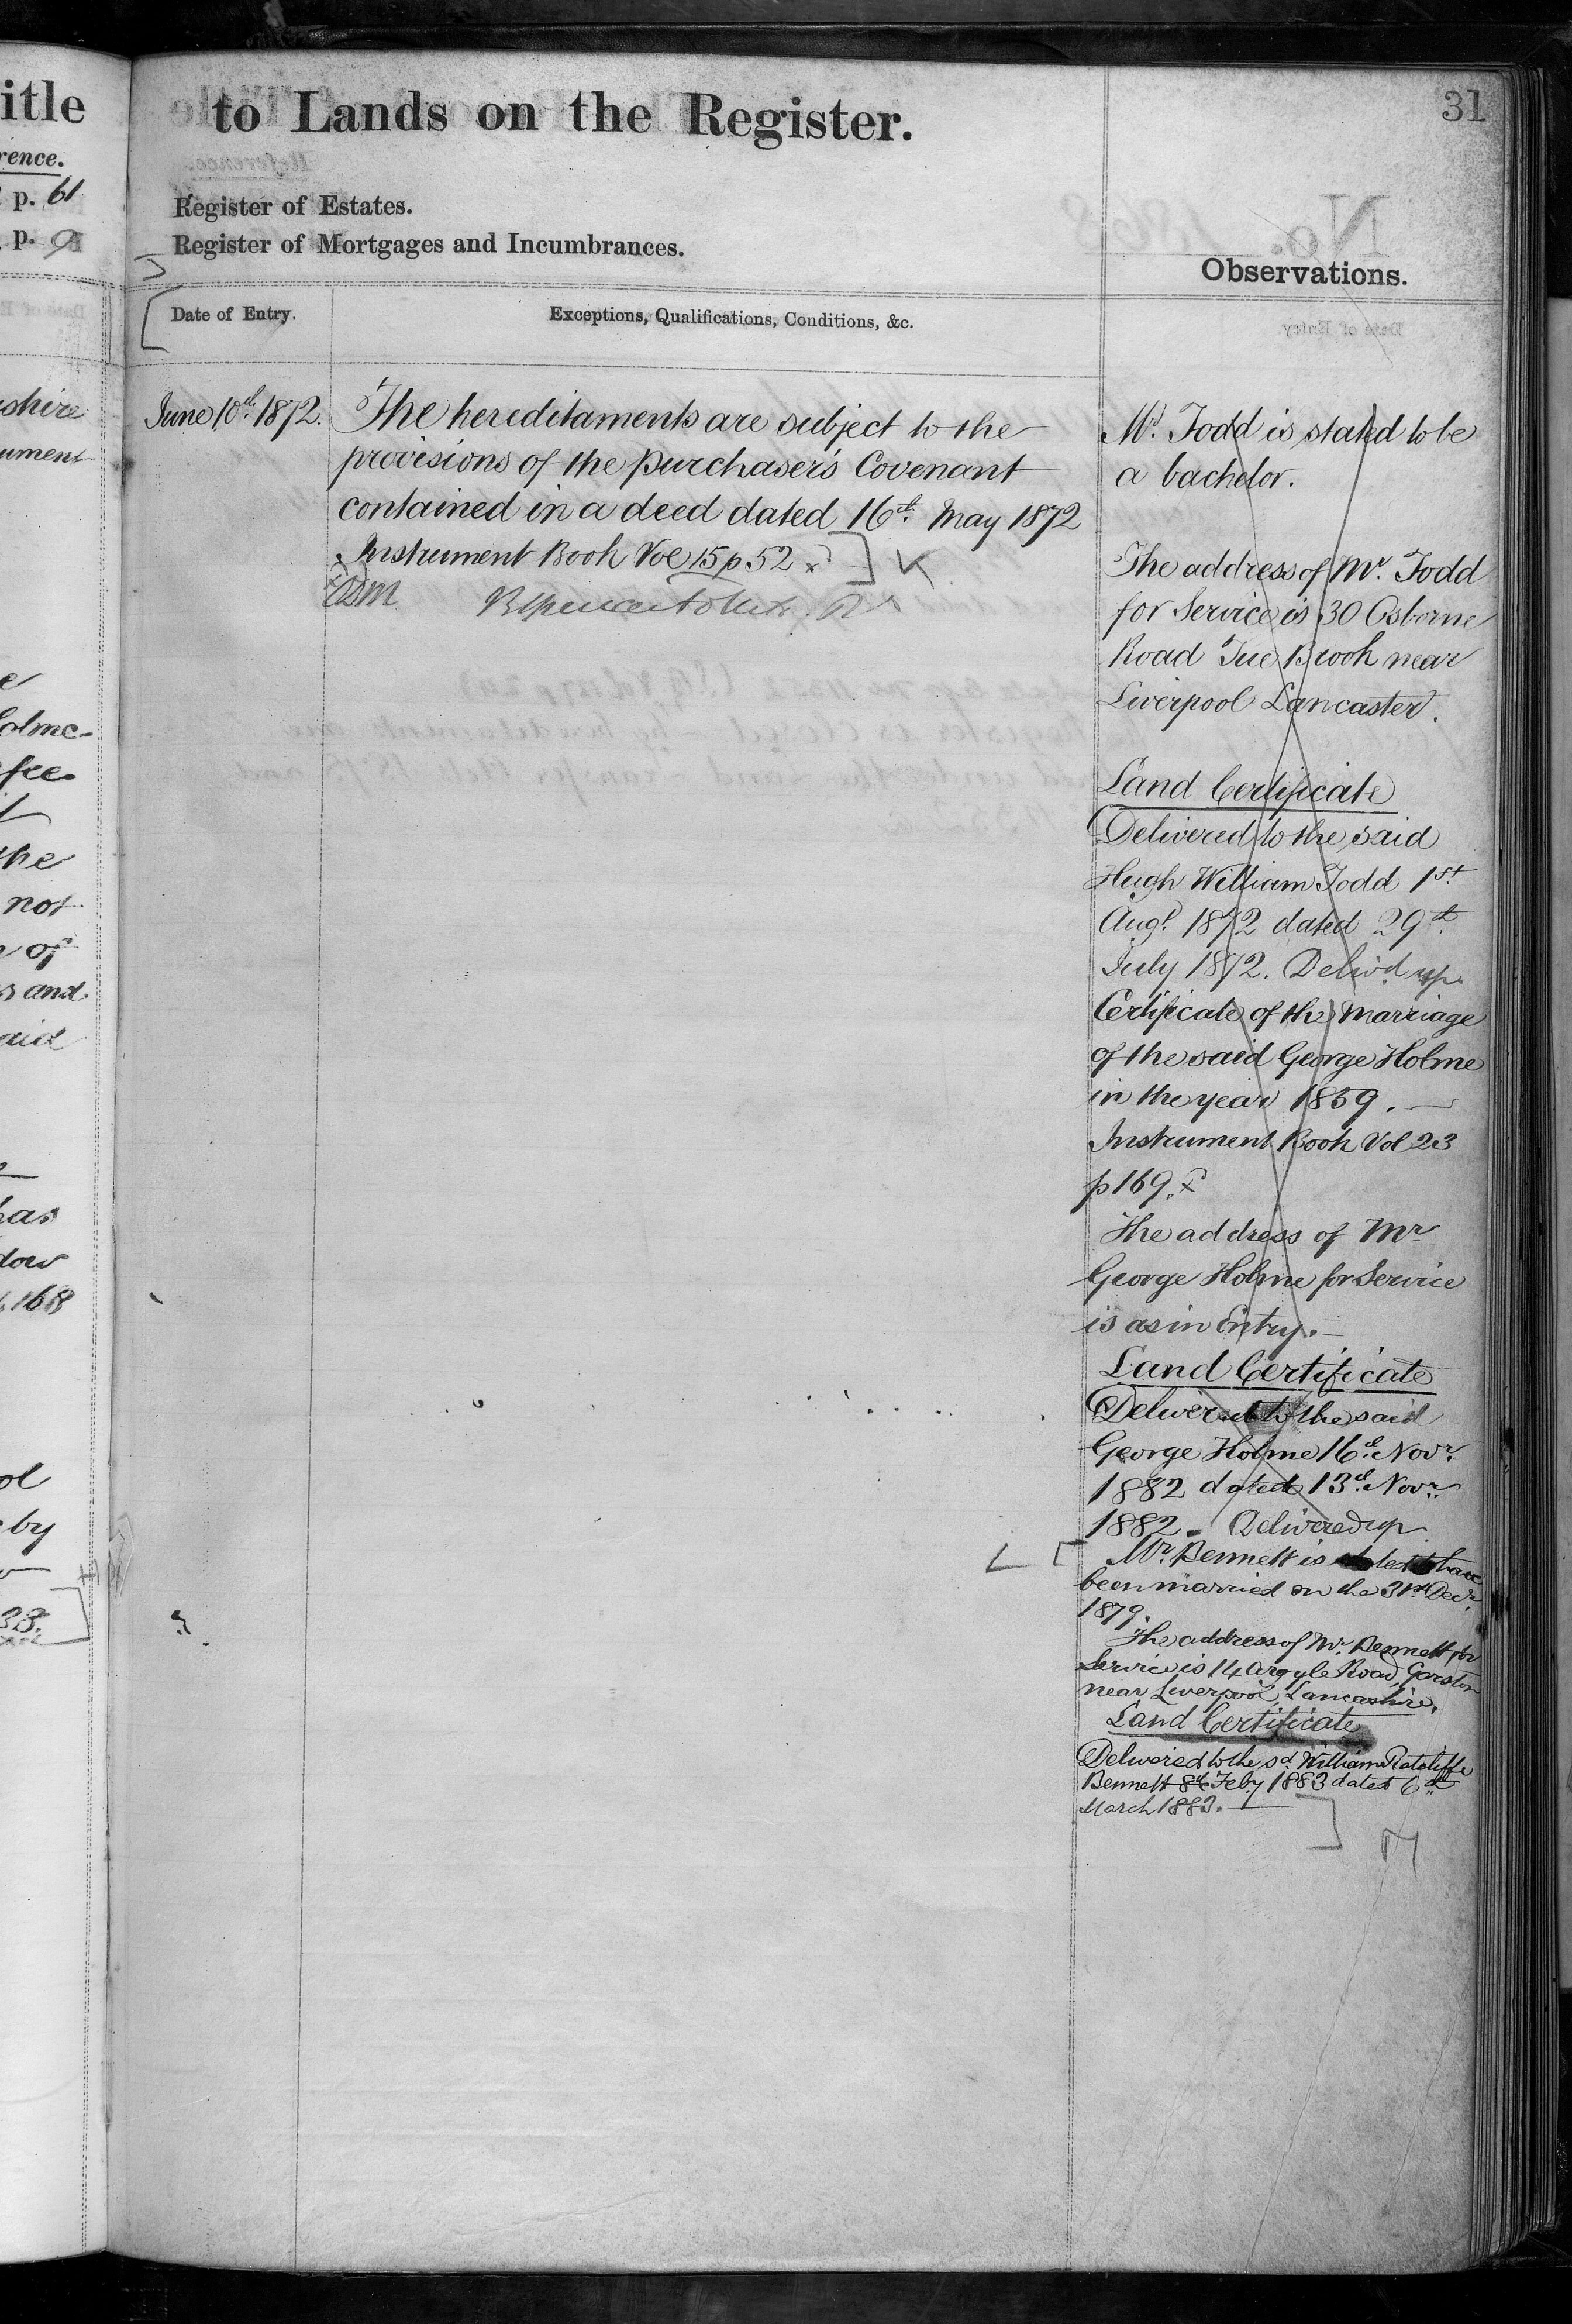 itle
rence.
p. 61
p. 9
shire
ument
e
Holme
fee
the
not
of
s and
aid
has
dow
168
ol
by
33.
to Lands on the Register.
31
Register of Estates.
Register of Mortgages and Incumbrances.
Observations.
Date of Entry.
Exceptions, Qualifications, Conditions, &c.
June 10th 1872.
The hereditaments are subject to the
provisions of the purchaser's Covenant
contained in a deed dated 16th May 1872
Instrument Book Vol 15 p 52
Mr. Todd is stated to be
a bachelor.
The address of Mr. Todd
for Service is 30 Osborne
Road Tue Brook near
Liverpool Lancaster.
Land Certificate
Delivered to the said
Hugh William Todd 1st
Augt. 1872 dated 29th
July 1872. Delivd up.
Certificate of the Marriage
of the said George Holme
in the year 1859.
Instrument Book Vol 23
p 169.
The address of Mr
George Holme for Service
is as in Entry.
Land Certificate
Delivered to the said
George Holme 16th Novr.
1882 dated 13th Novr.
1882. Delivered up
Mr. Bennett is have
been married on the 31st Decr.
1879.
The address of Mr. Bennett for
Service is 14 Argyle Road, Garston
near Liverpool, Lancashire.
Land Certificate
Delivered to the sd. William Ratcliffe
Bennett 8th Feby 1883 dated 6th
March 1883.